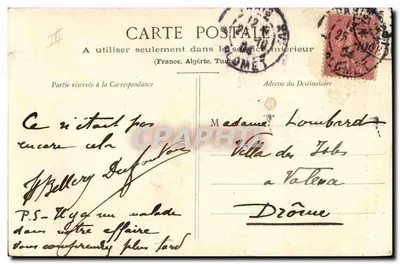 CARTE POSTALE
A utiliser seulement dans le service intérieur
(France, Algérie, Tunisie)
Partie réservée à la Correspondance
Adresse du Destinataire
Ce n'était pas
encore cela
H Bellery Desfontaines
P.S- Il y a un malade
dans votre affaire
vous comprendrez plus tard
Madame Lombard
Villa des
a Valence
Drôme
PARIS
12
PLUMET